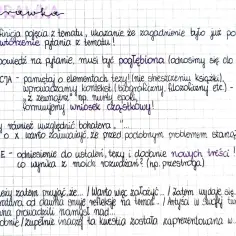 rozprawka
inicja pojęcia z tematu, ukazanie że zagadnienie było już po
wtórzenie pytania z tematu!
powiedź na pytanie. musi być pogłębiona (odnosimy się do
CJA - pamiętaj o elementach tezy! (nie streszczamy książki),
wprowadzamy konteksty (biograficzny, filozoficzny etc) -
z "zewnątrz" np. nurty epok,
formujemy wniosek cząstkowy!
y również uwzględnić bohatera „
o x. warto zauważyć, że przed podobnym problemem stanął
E - odniesienie do ustaleń, tezy i dodanie nowych treści!
co wynika z moich rozważań? (np. przestroga)
eży zatem przyjąć, że... / Warto więc założyć... / Zatem wydaje się,
od dawna snuje refleksje na temat... / Artyści w swojej twó
na prowadzili namysł nad...
obnie / Zupełnie inaczej ta kwestia została zaprezentowana w